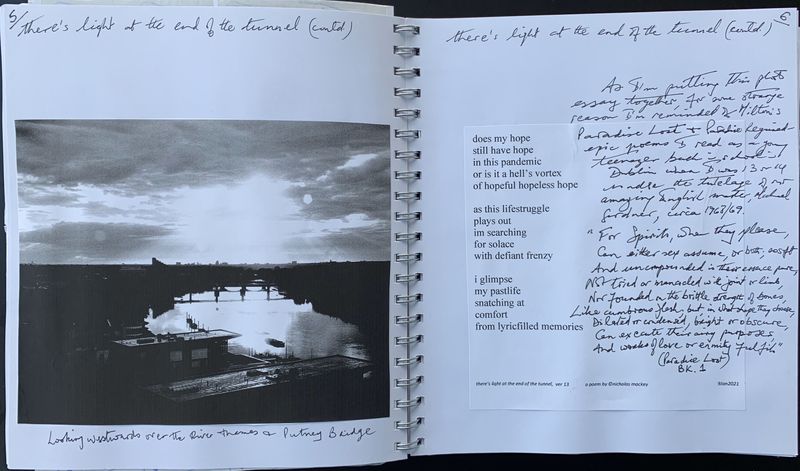 5/
there's light at the end of the tunnel (contd)
Looking westwards over the River Thames & Putney Bridge
6
there's light at the end of the tunnel (contd)
As I'm putting this photo
essay together, for some strange
reason I'm reminded of Milton's
Paradise Lost & Paradise Regained
epic poems I read as a young
teenager back in school in
Dublin when I was 13 or 14
under the tutelage of our
amazing English master, Michael
Gardner, circa 1968/69.
"For Spirits, when they please,
Can either sex assume, or both, so soft
And uncompounded is their essence pure,
Not tried or manacled with joint or limb,
Nor founded on the brittle strength of bones,
Like cumbrous flesh, but in what shape they choose,
Dilated or condensed, bright or obscure,
Can execute their airy purposes
And works of love or enmity fulfil"
(Paradise Lost)
BK. 1
does my hope
still have hope
in this pandemic
or is it a hell's vortex
of hopeful hopeless hope
as this lifestruggle
plays out
im searching
for solace
with defiant frenzy
i glimpse
my pastlife
snatching at
comfort
from lyricfilled memories
there's light at the end of the tunnel, ver 13 a poem by ©nicholas mackey 9Jan2021